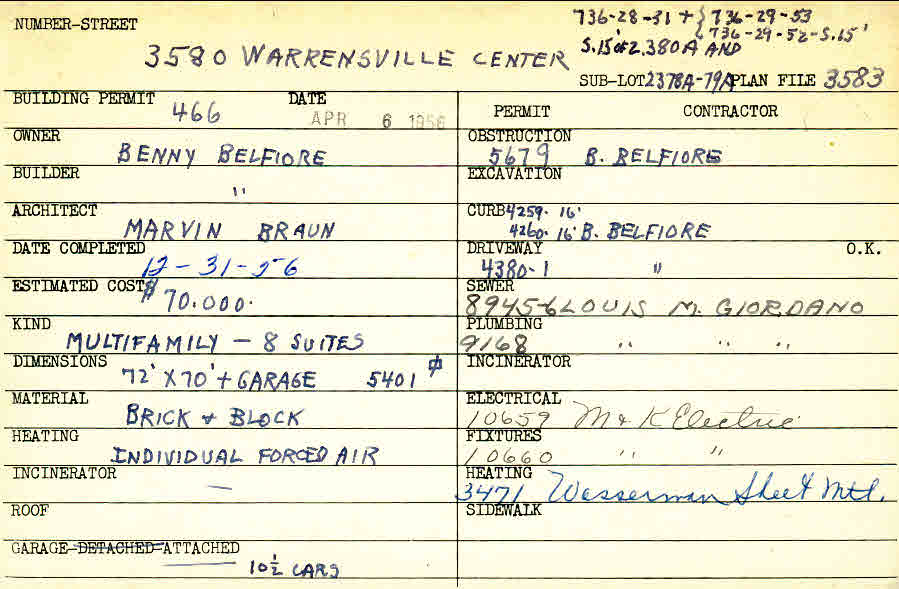 NUMBER-STREET
736-28-31 + { 736-29-53
736-29-52-S.15'
S.15' of 2380A AND
3580 WARRENSVILLE CENTER
SUB-LOT 2378A-79A PLAN FILE 3583
BUILDING PERMIT 466 DATE APR 6 1956
PERMIT CONTRACTOR
OWNER BENNY BELFIORE
OBSTRUCTION 5679 B. BELFIORE
BUILDER "
EXCAVATION
ARCHITECT MARVIN BRAUN
CURB 4259- 16'
4260- 16' B. BELFIORE
DATE COMPLETED 12-31-56
DRIVEWAY 4380-1 " O.K.
ESTIMATED COST $70.000.
SEWER 8945-6 LOUIS M. GIORDANO
KIND MULTIFAMILY - 8 SUITES
PLUMBING 9168 " " "
DIMENSIONS 72' X 70' + GARAGE 5401
INCINERATOR
MATERIAL BRICK + BLOCK
ELECTRICAL 10659 M & K Electric
HEATING INDIVIDUAL FORCED AIR
FIXTURES 10660 " "
INCINERATOR —
HEATING 3471 Wasserman Sheet Mtl.
ROOF
SIDEWALK
GARAGE-DETACHED-ATTACHED
10½ CARS